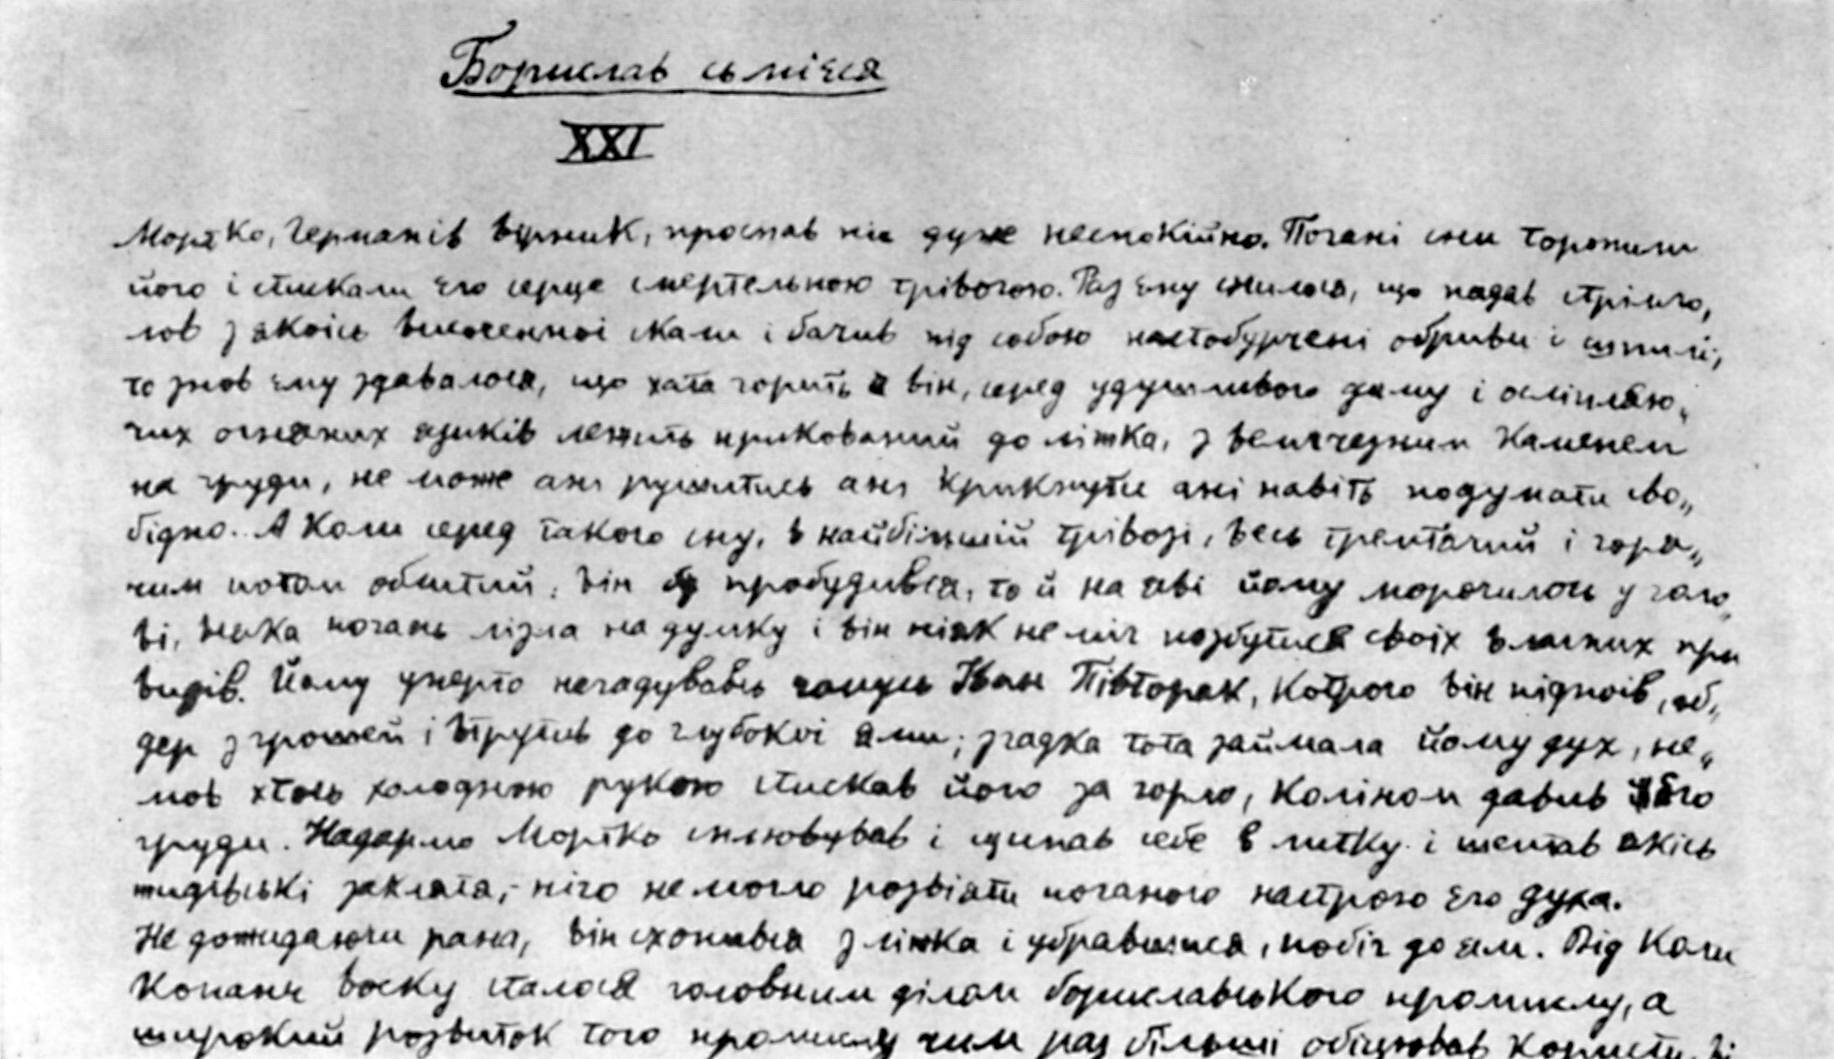 Борислав сьмієся
XXI
Мортко, Германів вірник, проспав ніч дуже неспокійно. Погані сни торопили
його і стискали єго серце смертельною трівогою. Раз єму снилося, що падав стрімго„
лов з якоїсь височенної скали і бачив під собою настобурчені обриви і шпилі,
то знов єму здавалося, що хата горить а він, серед удушливого диму і осліпляю„
чих огняних язиків лежить прикований до ліжка, з величезним каменем
на груди, не може ані рушитись ані крикнути ані навіть подумати сво„
бідно. А коли серед такого сну, в найбільшій трівозі, весь трептячий і горя„
чим потом облитий, він пробудився, то й на яві йому морочилось у голо„
ві, всяка погань лізла на думку і він ніяк не міг позбутися своїх власних при
видів. Йому уперто нагадувавсь чомусь Іван Півторак, котрого він підпоїв, об„
дер з грошей і втрутив до глубокої ями; згадка тота займала йому дух, не„
мов хтось холодною рукою стискав його за горло, коліном давив його
груди. Надармо Мортко спльовував і щипав себе в литку і шептав якісь
жидівські закляття, - ніщо не могло розвіяти поганого настрою єго духа.
Не дожидаючи рана, він схопився з ліжка і убравшися, побіг до ям. Від коли
копанє воску сталося головним ділом бориславського промислу, а
широкий розвиток того промислу чим раз більші обіцював користи,